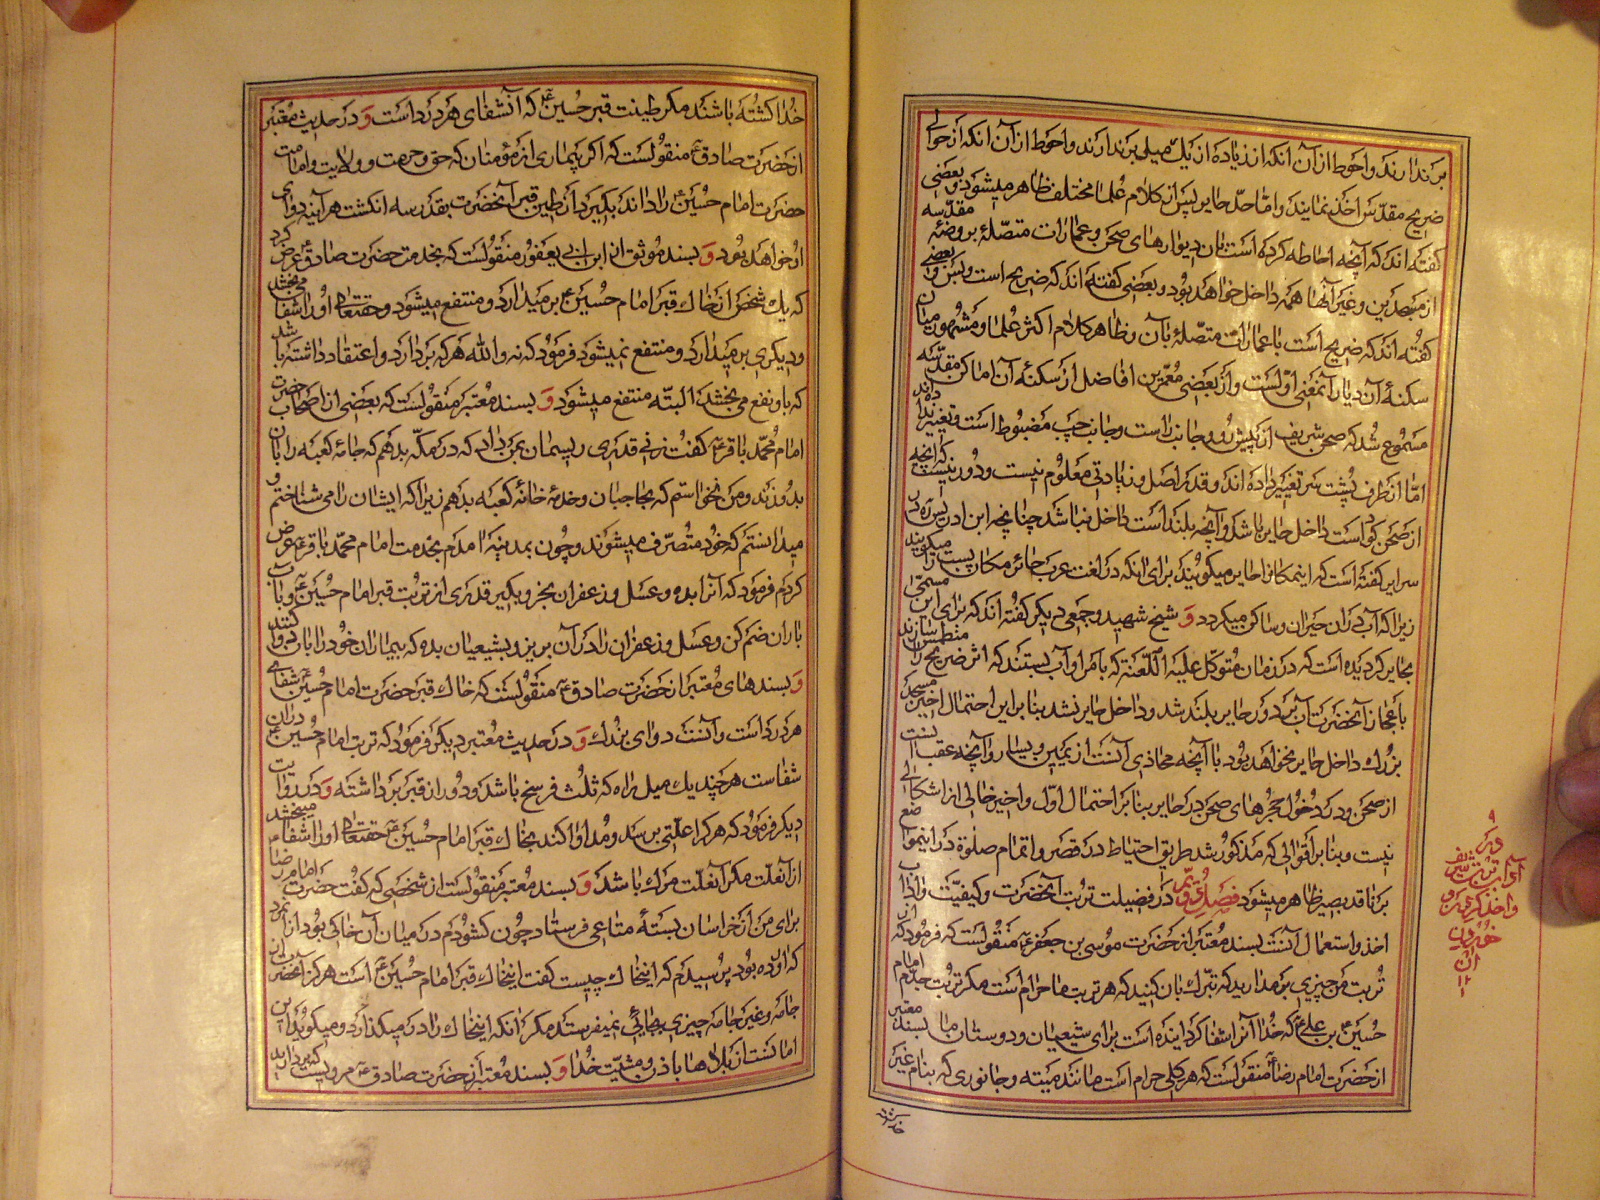 برندارند و احوط از آن آنکه از زیاده از یک میلی برندارند و احوط از آن آنکه از حوالی
ضریح مقدس اخذ نمایند و اما حد حایر پس از کلام علما مختلف ظاهر میشود و بعضی
گفته اند که آنچه احاطه کرده است بآن دیوارهای صحن و عمارات متصلهٔ بروضهٔ مقدسه
از مسجدین و غیر آنها همه داخل خواهد بود و بعضی گفته اند که ضریح است و بس و بعضی
گفته اند که ضریح است با عمارات متصلهٔ بآن و ظاهر کلام اکثر علما و مشهور میان
سکنهٔ آن دیار آنمعنی اولست و از بعضی معمرین افاضل از سکنهٔ آن اماکن مقدسه
مسموع شد که صحن شریف از پیش رو و جانب راست و جانب چپ مضبوط است و تغییر نداده اند
اما از طرف پشت سر تغییر داده اند و قدر اصل و زیادتی معلوم نیست و دور نیست که آنچه
از صحن گو است داخل حایر باشد و آنچه بلند است داخل نباشد چنانچه ابن ادریس در
سرایر گفته است که اینمکانرا حایر میگویند برای آنکه در لغت عرب حائر مکان پست را میگویند
زیرا که آب در آن حیران و ساکن میگردد و شیخ شهید و جمعی دیگر گفته اند که برای این مسمی
بحایر گردیده است که در زمان متوکل علیه اللعنة که بامر او آب بستند که اثر ضریح را منطمس سازند
باعجاز آنحضرت آب بر دور حایر بلند شد و داخل حایر نشد بنا بر این احتمال اخیر مسجد
بزرک داخل حایر نخواهد بود با آنچه محاذی آنست از یمین و یسار و آنچه عقب آنست
از صحن و در دخول حجرهای صحن در حایر بنا بر احتمال اول و اخیر خالی از اشکالی
نیست و بنا بر اقوالی که مذکور شد طریق احتیاط در قصر و اتمام صلوة در اینمواضع
بر ناقد بصیر ظاهر میشود فصل در فضیلت تربت آنحضرت و کیفیت و آداب
اخذ و استعمال آنست بسند معتبر از حضرت موسی بن جعفر ع منقولست که فرمود که از
تربت من چیزی برمدارید که تبرک بآن کنید که هر تربت ما حرام است مگر تربت جدم امام
حسین بن علی ع که خدا آنرا شفا گردانیده است برای شیعیان و دوستان ما بسند معتبر
از حضرت امام رضا ع منقولست که هر گلی حرام است مانند میته و جانوری که بنام غیر
خدا کشته
خدا کشته باشند مگر طینت قبر حسین ع که آن شفای هر درد است و در حدیث معتبر
از حضرت صادق ع منقولست که اگر بیماری از مؤمنان که حق و حرمت و ولایت و امامت
حضرت امام حسین ع را داند بگیرد از طین قبر آنحضرت بقدر سه انگشت هرآینه دوای
او خواهد بود و بسند موثق از ابن ابی یعفور منقولست که بخدمت حضرت صادق ع عرض کرد
که یک شخص از خاک قبر امام حسین ع برمیدارد و منتفع میشود و حقتعالی او را شفا می بخشد
و دیگری برمیدارد و منتفع نمیشود فرمود که نه والله هر که بردارد و اعتقاد داشته باشد
که باو نفع می بخشد البته منتفع میشود و بسند معتبر منقولست که بعضی از اصحاب حضرت
امام محمد باقر ع گفت زنی قدری ریسمان بمن داد که در مکه بدهم که جامهٔ کعبه را بآن
بدوزند و من نخواستم که بحاجبان و خدمهٔ خانهٔ کعبه بدهم زیرا که ایشان را می شناختم و
میدانستم که خود متصرف میشوند و چون بمدینه آمدم بخدمت امام محمد باقر ع عرض
کردم فرمود که آنرا بده و عسل و زعفران بخر و بگیر قدری از تربت قبر امام حسین ع و بآب
باران ضم کن و عسل و زعفران را در آن بریز و بشیعیان بده که بیماران خود را بآن دوا کنند
و بسندهای معتبر از حضرت صادق ع منقولست که خاک قبر حضرت امام حسین ع شفای
هر درد است و آنست دوای بزرک و در حدیث معتبر دیگر فرمود که تربت امام حسین ع در آن
شفاست هر چند یک میل راه که ثلث فرسخ باشد و دور از قبر برداشته و در روایت
دیگر فرمود که هر کرا علتی برسد و مداوا کند بخاک قبر امام حسین ع حقتعالی او را شفا میبخشد
از آنعلت مگر آنعلت مرک باشد و بسند معتبر منقولست از شخصی که گفت حضرت امام رضا
برای من از خراسان بستهٔ متاعی فرستاد چون گشودم در میان آن خاکی بود از آنمرد
که آورده بود پرسیدم که اینخاک چیست گفت اینخاک قبر امام حسین ع است هرگز آنحضرت
جامه و غیر جامه چیزی بجائی نمیفرستد مگر آنکه اینخاک را در آن میگذارد و میگوید این
امانست از بلاها باذن و مشیت خدا و بسند معتبر از حضرت صادق ع مرویست